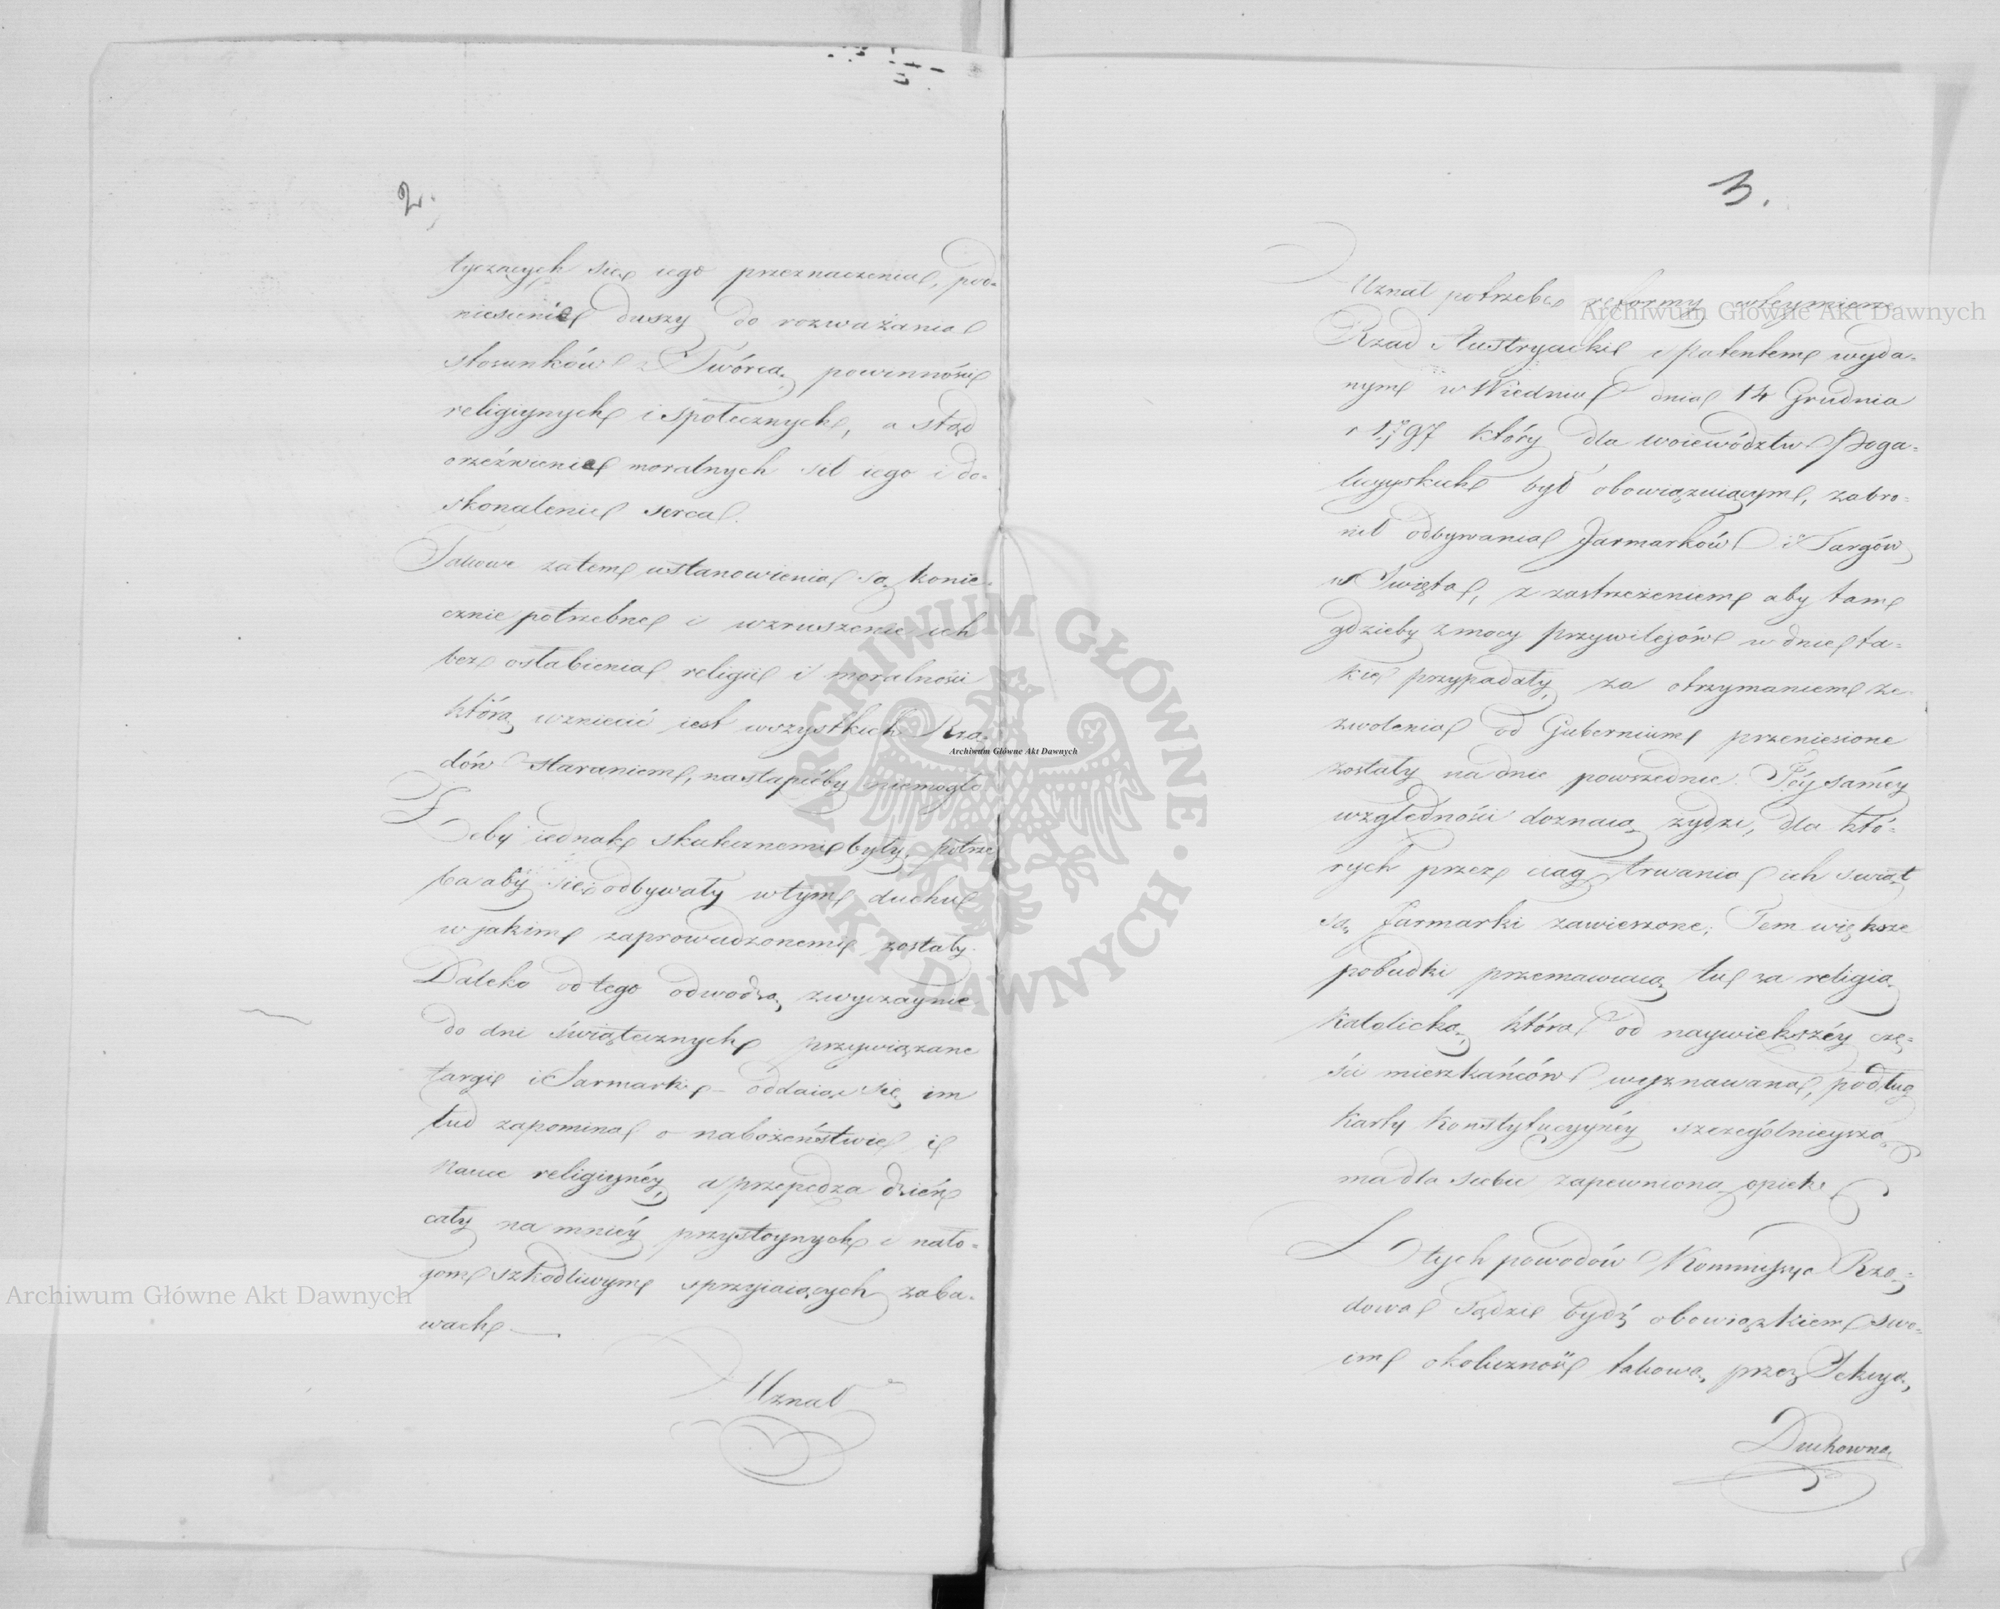 2.
tyczących się iego przeznaczenia, pod-
niesienie duszy do rozważania
stosunków z Twórcą, powinności
religiynych i społecznych, a stąd
orzeźwienie moralnych sił iego i do-
skonalenie serca.
Takowe zatem ustanowienia są konie-
cznie potrzebne i wzruszenie ich
bez osłabienia religii i moralności
którą wzniecić iest wszystkich Rzą-
dów staraniem, nastąpićby niemogło
Żeby iednak skutecznemi były, potrze
ba aby się odbywały w tym duchu
w jakim zaprowadzonemi zostały.
Daleko od tego odwodzą, zwyczaynie
do dni świątecznych przywiązane
targi i Jarmarki – oddaiąc się im
lud zapomina o nabożeństwie i
nauce religiynéy, a przepędza dzień
cały na mniéy przystoynych i nało-
gom szkodliwym sprzyiaiących zaba-
wach —
Uznał
3.
Uznał potrzebę reformy w tey mierze
Rząd Austryacki i patentem wyda-
nym w Wiedniu dnia 14 Grudnia
1797 który dla woiewództw Poga-
licyyskich był obowiązuiącym, zabro-
nił odbywania Jarmarków i Targów
w Święta, z zastrzeżeniem aby tam
gdzieby z mocy przywilejów w dnie ta-
kie przypadały, za otrzymaniem ze
zwolenia od Gubernium przeniesione
zostały na dnie powszednie. Téy saméy
względności doznaią żydzi, dla któ-
rych przez ciąg trwania ich świąt
są Jarmarki zawieszone; Tem większe
pobudki przemawiaią tu za religią
katolicką, która od naywiększéy czę-
ści mieszkańców wyznawana, podług
karty konstytucyynéy szczególnieyszą
ma dla siebie zapewnioną opiekę
Z tych powodów Kommissya Rzą-
dowa sądzi bydź obowiązkiem swo-
im okoliczność takową, przez Sekcyą,
Duchowną
Archiwum Główne Akt Dawnych
Archiwum Główne Akt Dawnych
Archiwum Główne Akt Dawnych
ARCHIWUM GŁÓWNE AKT DAWNYCH